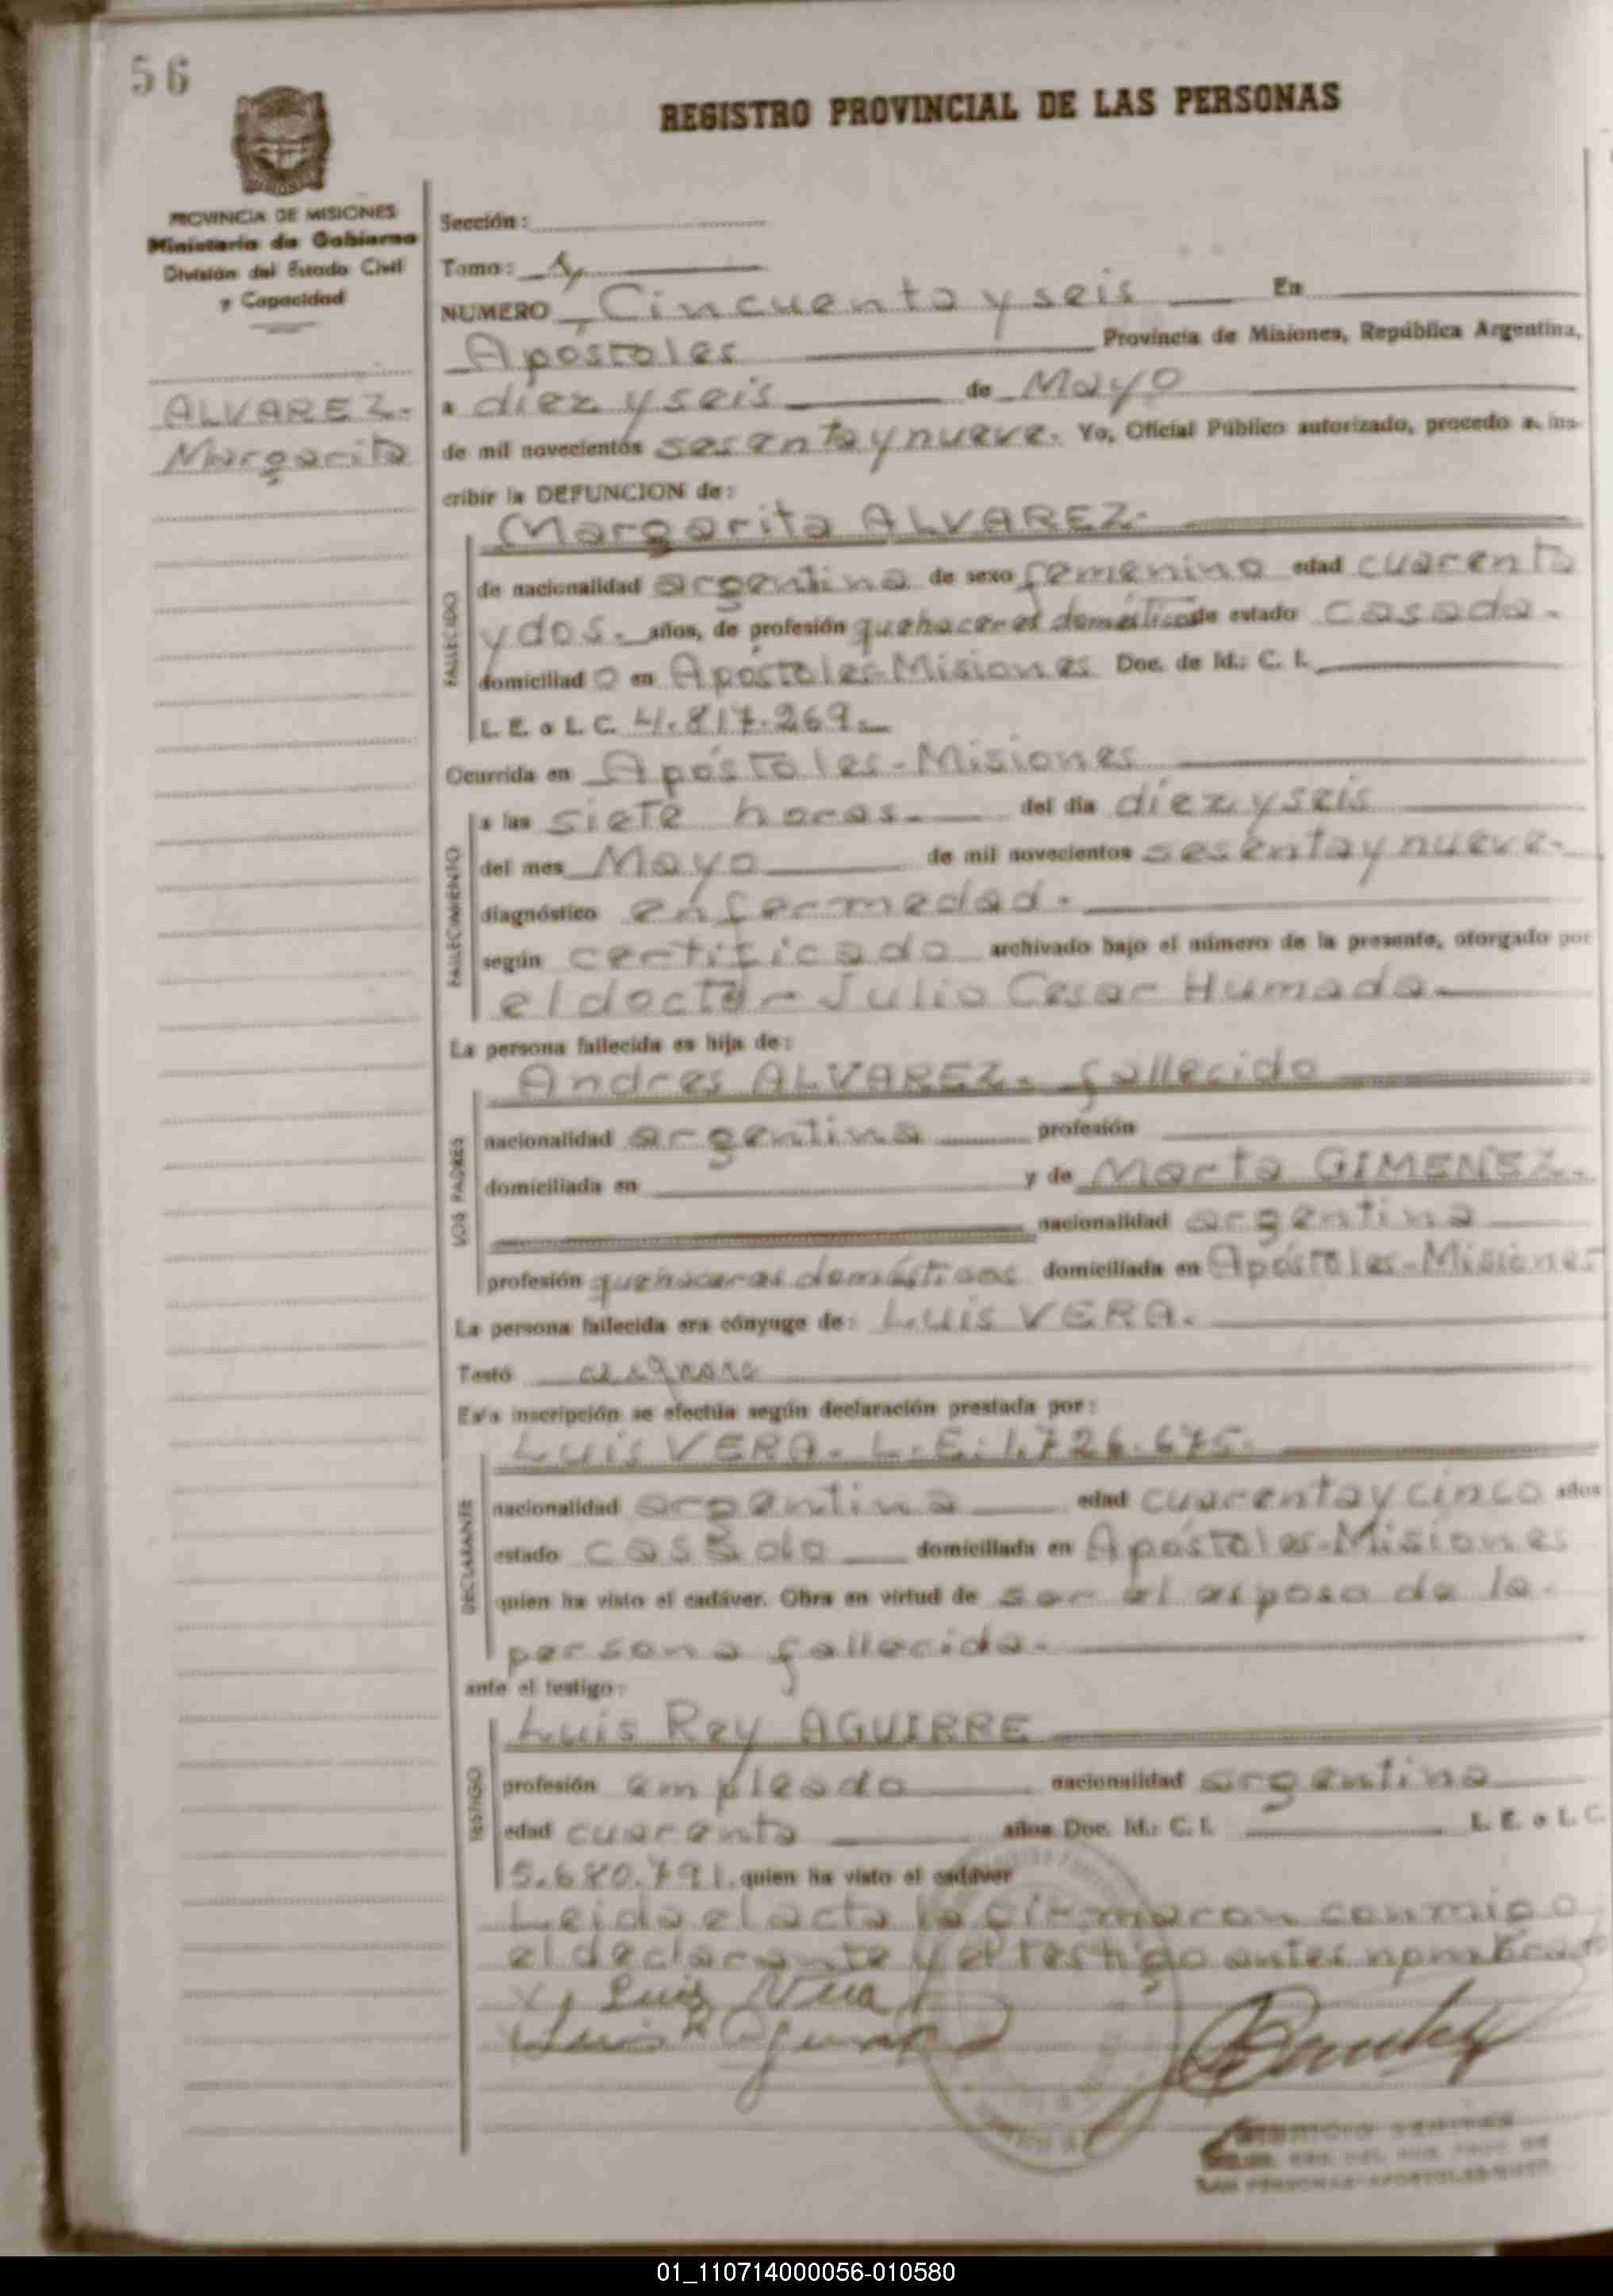 56
REGISTRO PROVINCIAL DE LAS PERSONAS
PROVINCIA DE MISIONES
Ministerio de Gobierno
División del Estado Civil
y Capacidad
ALVAREZ.
Margarita
Sección:
Tomo:
NUMERO Cincuenta y seis En
Apóstoles Provincia de Misiones, República Argentina,
a diez y seis de Mayo
de mil novecientos sesenta y nueve. Yo, Oficial Público autorizado, procedo a ins-
cribir la DEFUNCION de:
Margarita ALVAREZ.
FALLECIDO
de nacionalidad argentina de sexo femenino edad cuarenta
y dos. años, de profesión quehaceres domésticos de estado casada.
domiciliad o en Apóstoles-Misiones Doc. de Id.: C. I.
L. E. o L. C. 4.817.269.
Ocurrida en Apóstoles-Misiones
FALLECIMIENTO
a las siete horas. del día diez y seis
del mes Mayo de mil novecientos sesenta y nueve.
diagnóstico enfermedad.
según certificado archivado bajo el número de la presente, otorgado por
el doctor Julio Cesar Humada.
La persona fallecida es hija de:
LOS PADRES
Andres ALVAREZ. fallecido
nacionalidad argentina profesión
domiciliada en y de Marta GIMENEZ.
nacionalidad argentina
profesión quehaceres domésticos domiciliada en Apóstoles-Misiones
La persona fallecida era cónyuge de: Luis VERA.
Testó
Esta inscripción se efectúa según declaración prestada por:
DECLARANTE
Luis VERA. L.E. 1.726.675.
nacionalidad argentina edad cuarenta y cinco años
estado casado domiciliada en Apóstoles-Misiones
quien ha visto el cadáver. Obra en virtud de ser el esposo de la
persona fallecida.
ante el testigo:
TESTIGO
Luis Rey AGUIRRE
profesión empleado nacionalidad argentina
edad cuarenta años Doc. Id.: C. I. L. E. o L. C.
5.680.791. quien ha visto el cadáver
Leida el acta la firmaron conmigo
el declarante y el testigo antes
Luis Vera
01_110714000056-010580